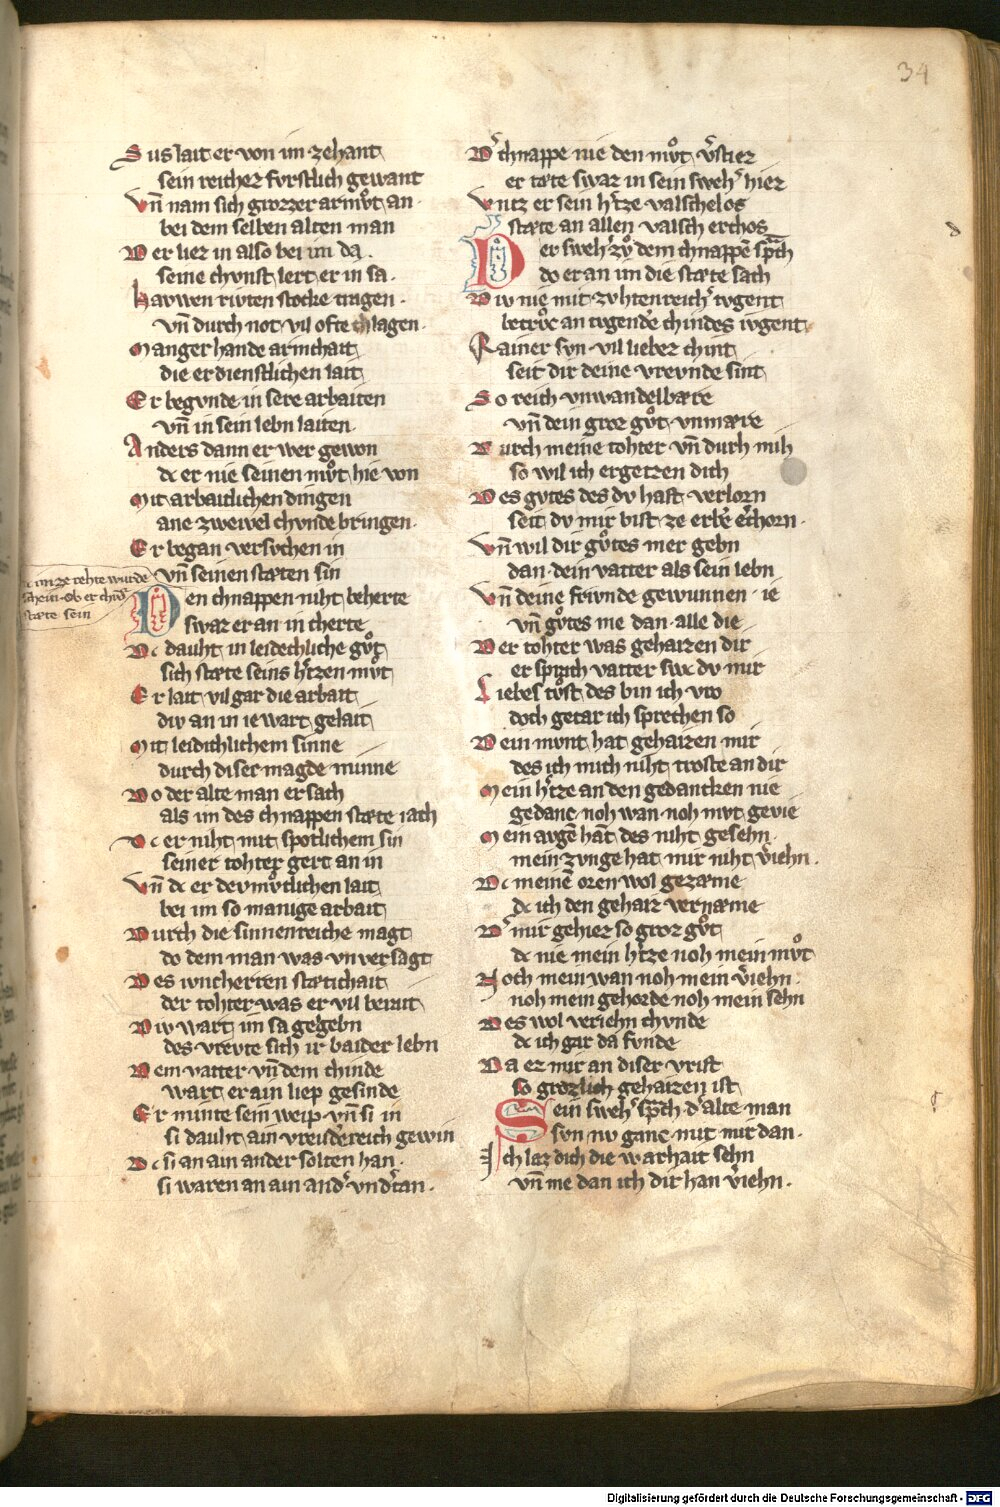 34
Sus lait er von im zehant
sein reicher furstlich gewant
Vn̄ nam sich grozzer armuͦt an
bei dem selben alten man
Der liez in also bei im da
seine chvnst lert er in sa
Havwen rivten stocke tragen
vn̄ durch not vil ofte chlagen
Manger hande arinchait
die er dienstlichen lait
Er begvnde in sere arbaiten
vn̄ in sein lebn laiten
Anders dann er wer gewon
dc er nie seinen muͦt hie von
Mit arbaitlichen dingen
ane zweivel chvnde bringen
Er began versvchen in
vn̄ seinen stæten sin
im ze rehte wurde
schein ob er chnd͛
stæte sein
Den chnappen niht beherte
swar er an in cherte
Dc dauht in leidechliche guͦt
sich stæte seins h͛tzen muͦt
Er lait vil gar die arbait
div an in ie wart gelait
Mit leidichlichem sinne
durch diser magde minne
Do der alte man ersach
als im des chnappen stæte iach
Dc er niht mit spotlichem sin
seiner tohter gert an in
Vn̄ dc er devmuͦtlichen lait
bei im so manige arbait
Durch die sinnenreiche magt
do dem man was vnversagt
Des ivncherren stætichait
der tohter was er vil berait
Div wart im sa gegebn
des vrevte sich ir baider lebn
Dem vatter vn̄ dem chinde
wart er ain liep gesinde
Er minte sein weip vn̄ si in
si dauht ain vreudereich gewin
Dc si an ain ander solten han
si waren an ain and͛ vnd͛tan
D͛ chnappe nie den muͦt v͛stiez
er tæte swaz in sein sweh͛ hiez
Vntz er sein h͛tze valschelos
stæte an allen valsch erchos
Der sweh͛ zuͦ dem chnappē sp̄ch
do er an im die stæte sach
Div nie mit zvhten reich͛ tvgent
betroͮc an tvgende chindes ivgent
Rainer svn vil lieber chint
seit dir deine vrevnde sint
So reich vnwandelbære
vn̄ dein groz guͦt vnmære
Durch meine tohter vn̄ durh mih
so wil ich ergetzen dich
Des gvtes des dv hast verlorn
seit dv mir bist ze erbē erchorn
Vn̄ wil dir guͦtes mer gebn
dan dein vatter als sein lebn
Vn̄ deine frivnde gewunnen ie
vn̄ guͦtes me dan alle die
Der tohter was gehaizen dir
er sprach vatter swc dv mir
Liebes tuͦst des bin ich vro
doch getar ich sprechen so
Dein mvnt hat gehaizen mir
des ich mich niht troste an dir
Mein h͛tze an den gedancken nie
gedanc noh wan noh mvt gevie
Mein avge hat des niht gesehn
mein zvnge hat mir niht v͛iehn
Dc meinē oren wol gezæme
dc ich den gehaiz vernæme
D͛ mir gehiez so groz guͦt
dc nie mein h͛tze noh mein muͦt
Noch mein wan noh mein v͛iehn
noh mein gehorde noh mein sehn
Des wol veriehn chvnde
dc ich gar da funde
Da ez mir an diser vrist
so grozlich gehaizen ist
Sein sweh͛ sp̄ch d͛ alte man
svn nv ganc mit mir dan
Ich laz dich die warhait sehn
vn̄ me dan ich dir han v͛iehn
Digitalisierung gefördert durch die Deutsche Forschungsgemeinschaft - DFG